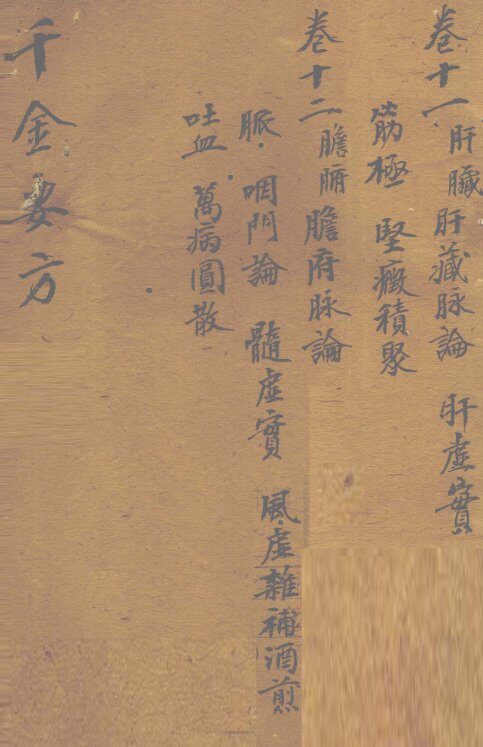 卷十一 肝臟 肝藏脉論 肝虛實
筋極 堅癥積聚
卷十二 膽腑 膽府脉論
脈 咽門論 髓虛實 風虛雜補酒煎
吐血 萬病圓散
千金要方